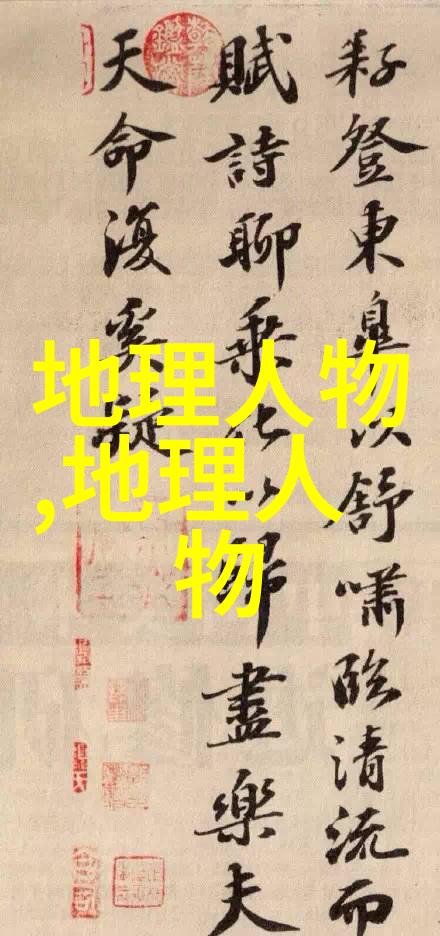 耔登東皋以舒嘯臨清流而
賦詩聊乘化以歸盡樂夫
天命復奚疑
地理人物
,地理人
物